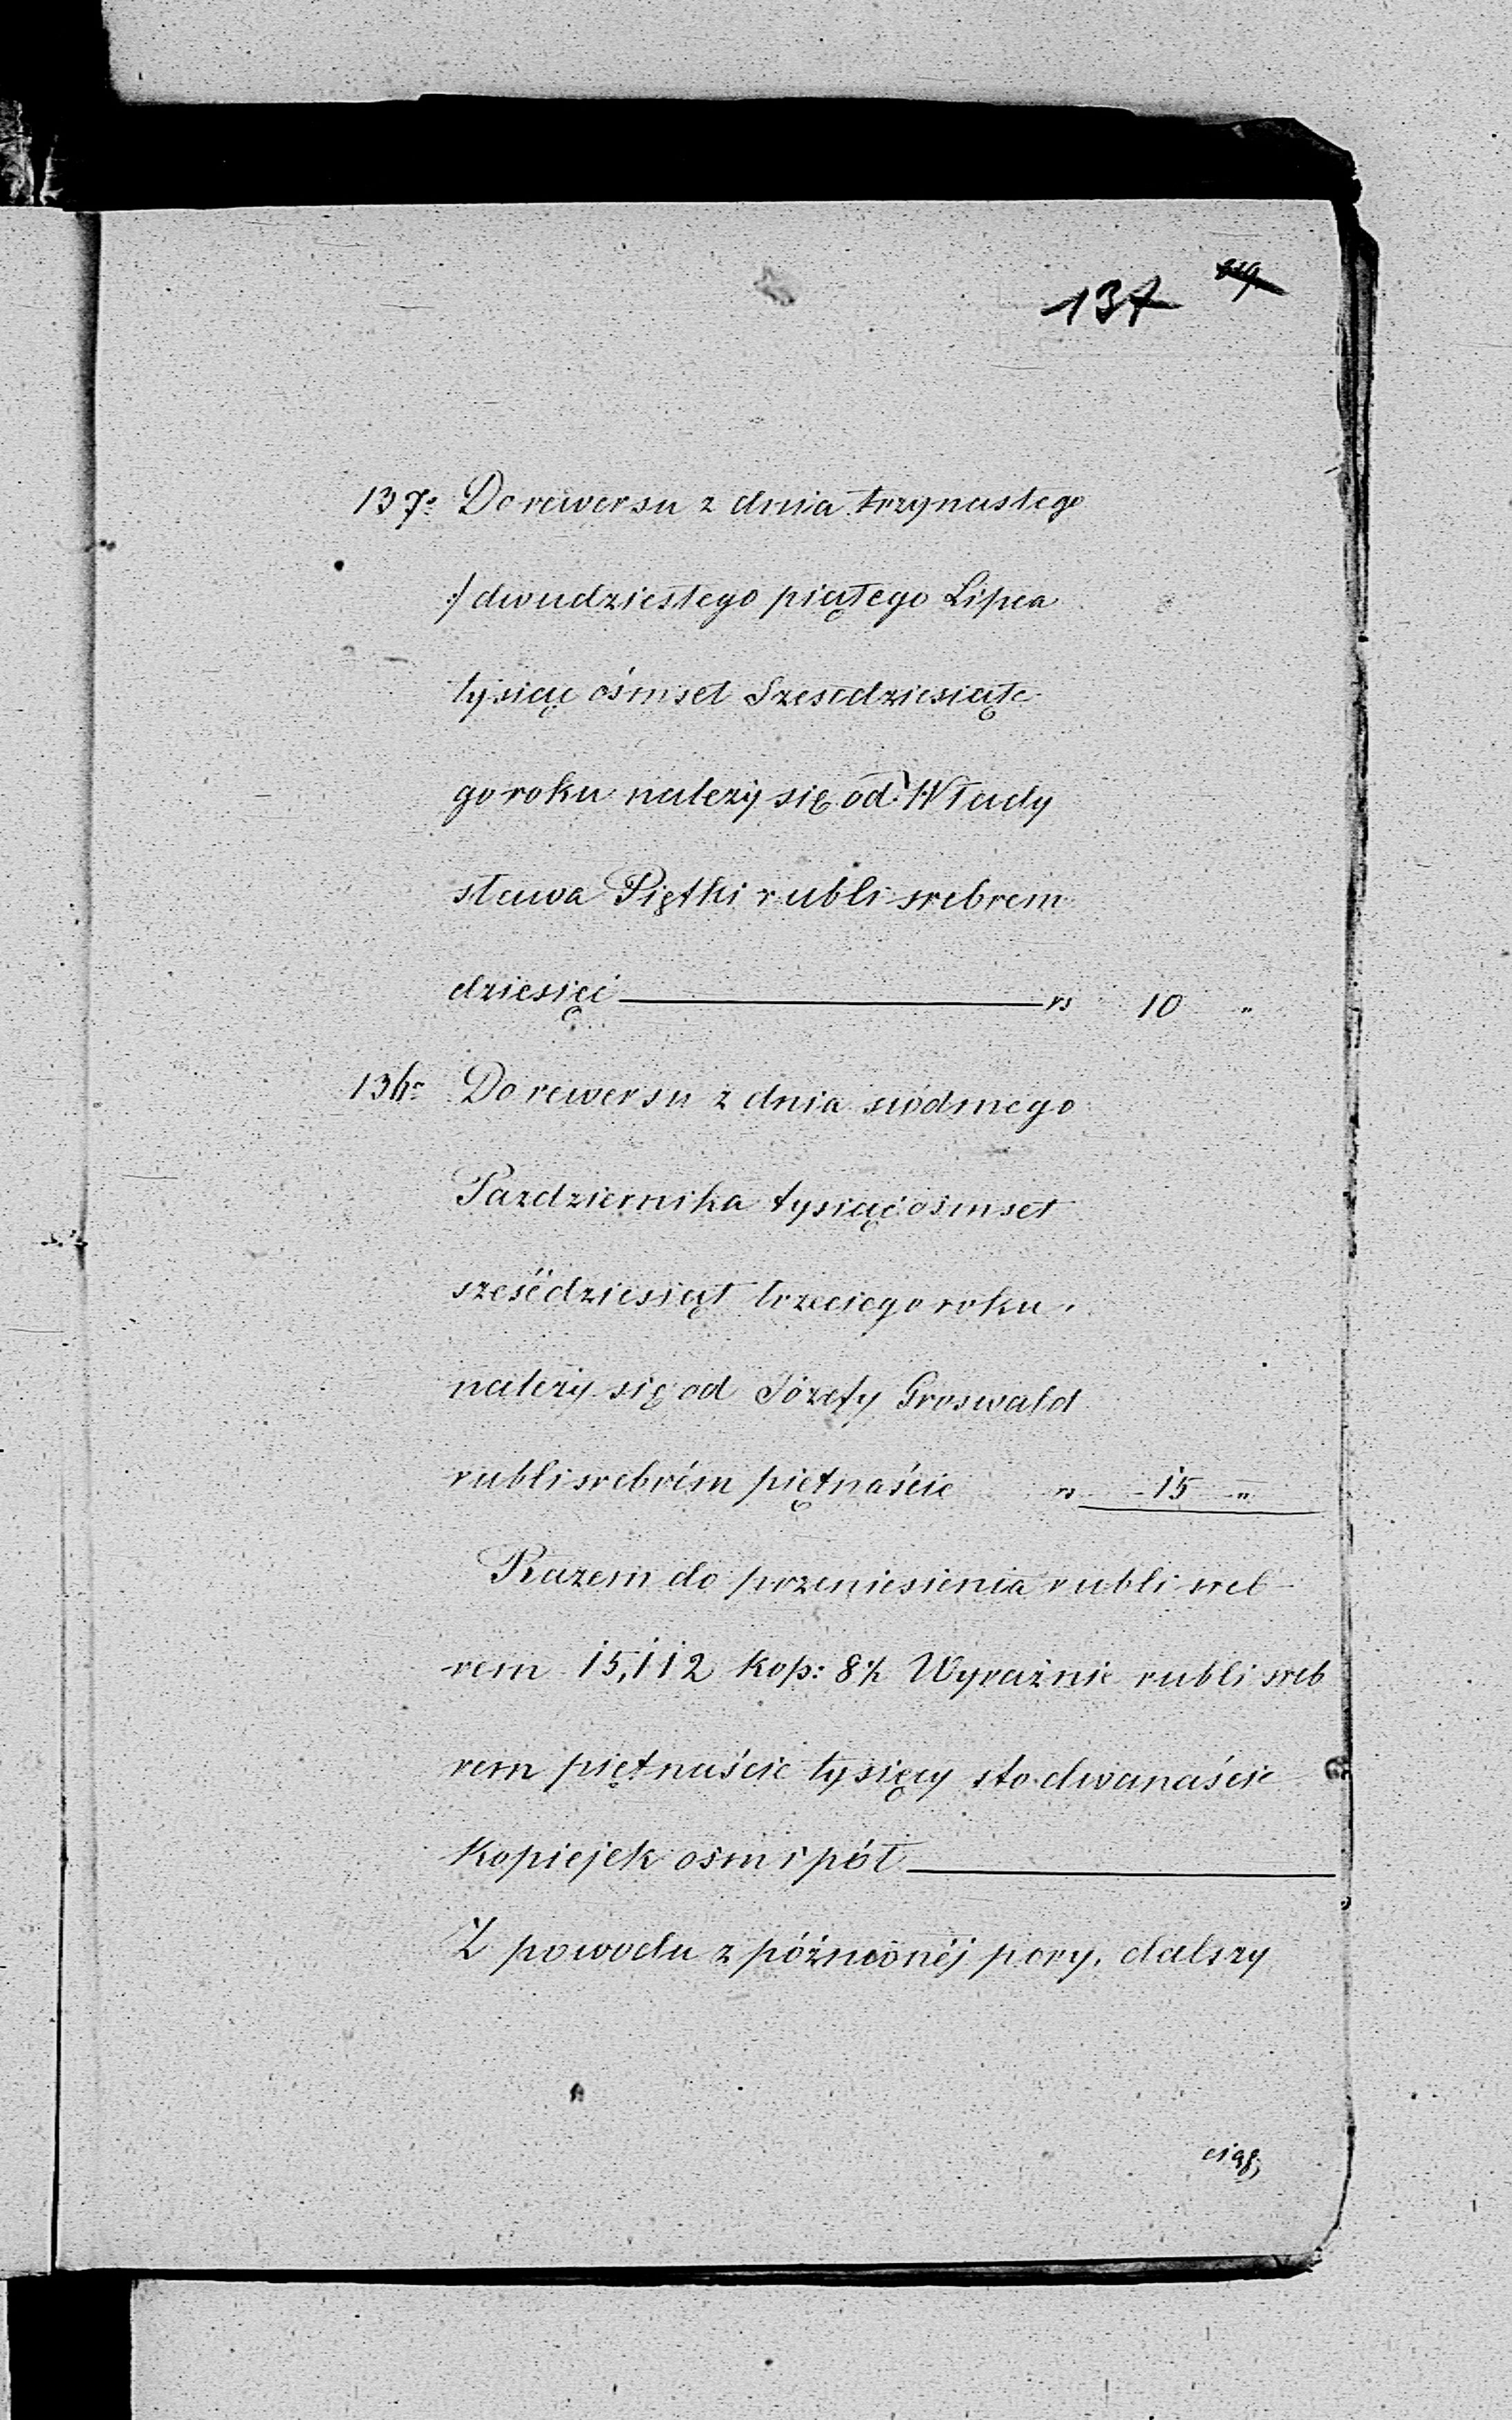 137
137º Do rewersu z dnia trzynastego
:/ dwudziestego piątego Lipca
tysiąc óśmset Szesćdziesiąte
go roku należy się od Włady
sława Piętki rubli srebrem
dziesięć rs 10 "
136º Do rewersu z dnia siódmego
Pazdziernika tysiąc ośmset
sześćdziesiąt trzeciego roku,
należy się od Józefy Groswald
rubli srebrém piętnaście rs 15 "
Razem do przeniesienia rubli sreb-
rem 15,112 Kop: 8½ Wyraźnie rubli sreb
rem piętnaście tysięcy sto dwanaście
Kopiejek ośm i pół
Z powodu spóźnionéj pory, dalszy
ciąg